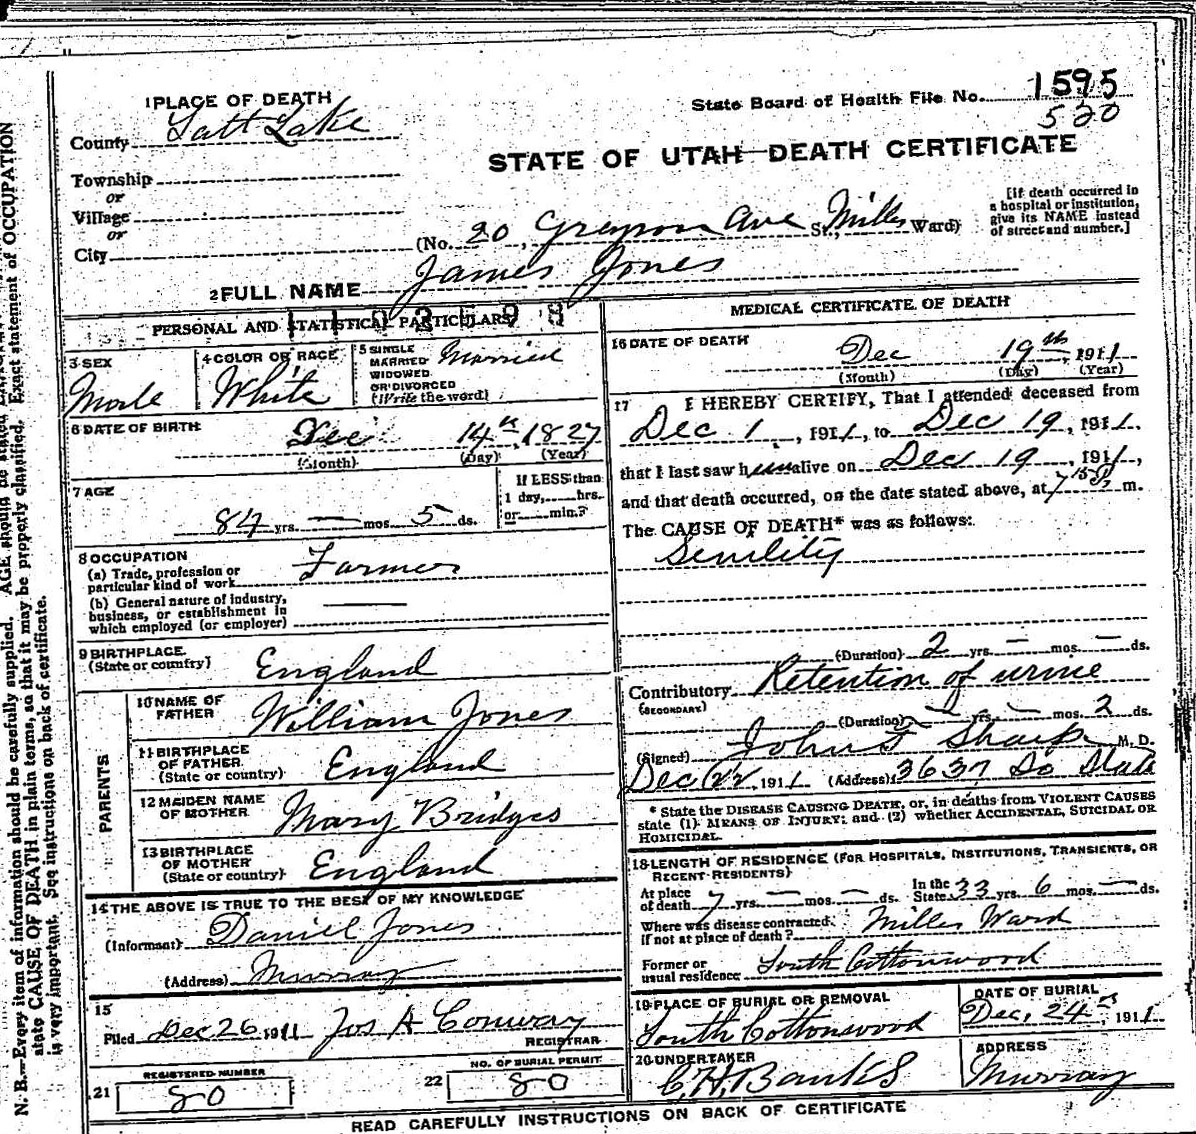 1 PLACE OF DEATH
State Board of Health File No. 1595
520
County Salt Lake
STATE OF UTAH—DEATH CERTIFICATE
Township
or
Village
or
City
(No. 20, Ave St., Miller Ward)
[If death occurred in
a hospital or institution,
give its NAME instead
of street and number.]
2 FULL NAME James Jones
PERSONAL AND STATISTICAL PARTICULARS
3 SEX
Male
4 COLOR OR RACE
White
5 SINGLE
MARRIED
WIDOWED
OR DIVORCED
(Write the word)
Married
6 DATE OF BIRTH
Dec 14th, 1827
(Month) (Day) (Year)
7 AGE
84 yrs. — mos. 5 ds.
If LESS than
1 day, hrs.
or min.?
8 OCCUPATION
(a) Trade, profession or
particular kind of work
Farmer
(b) General nature of industry,
business, or establishment in
which employed (or employer)
—
9 BIRTHPLACE
(State or country)
England
PARENTS
10 NAME OF
FATHER
William Jones
11 BIRTHPLACE
OF FATHER
(State or country)
England
12 MAIDEN NAME
OF MOTHER
Mary Bridges
13 BIRTHPLACE
OF MOTHER
(State or country)
England
14 THE ABOVE IS TRUE TO THE BEST OF MY KNOWLEDGE
(Informant) Daniel Jones
(Address) Murray
15
Filed Dec 26, 1911 Jos A Conway
REGISTRAR
REGISTERED NUMBER
21 80
NO. OF BURIAL PERMIT
22 80
MEDICAL CERTIFICATE OF DEATH
16 DATE OF DEATH
Dec 19th, 1911
(Month) (Day) (Year)
17 I HEREBY CERTIFY, That I attended deceased from
Dec 1, 1911, to Dec 19, 1911,
that I last saw him alive on Dec 19, 1911,
and that death occurred, on the date stated above, at 7 15 P. m.
The CAUSE OF DEATH* was as follows:
Senility
(Duration) 2 yrs. — mos. — ds.
Contributory Retention of urine
(SECONDARY)
(Duration) — yrs. — mos. 2 ds.
(Signed) John F Sharp M. D.
Dec 22, 1911 (Address) 3637 So State
* State the DISEASE CAUSING DEATH, or, in deaths from VIOLENT CAUSES
state (1) MEANS OF INJURY; and (2) whether ACCIDENTAL, SUICIDAL OR
HOMICIDAL.
18 LENGTH OF RESIDENCE (FOR HOSPITALS, INSTITUTIONS, TRANSIENTS, OR
RECENT RESIDENTS)
At place
of death 7 yrs. — mos. — ds.
In the
State 33 yrs. 6 mos. — ds.
Where was disease contracted,
if not at place of death? Miller Ward
Former or
usual residence South Cottonwood
19 PLACE OF BURIAL OR REMOVAL
South Cottonwood
DATE OF BURIAL
Dec, 24, 1911
20 UNDERTAKER
C. H. Banks
ADDRESS
Murray
READ CAREFULLY INSTRUCTIONS ON BACK OF CERTIFICATE
N. B.—Every item of information should be carefully supplied. AGE should be stated
state CAUSE OF DEATH in plain terms, so that it may be properly classified. Exact statement of OCCUPATION
is very important. See instructions on back of certificate.